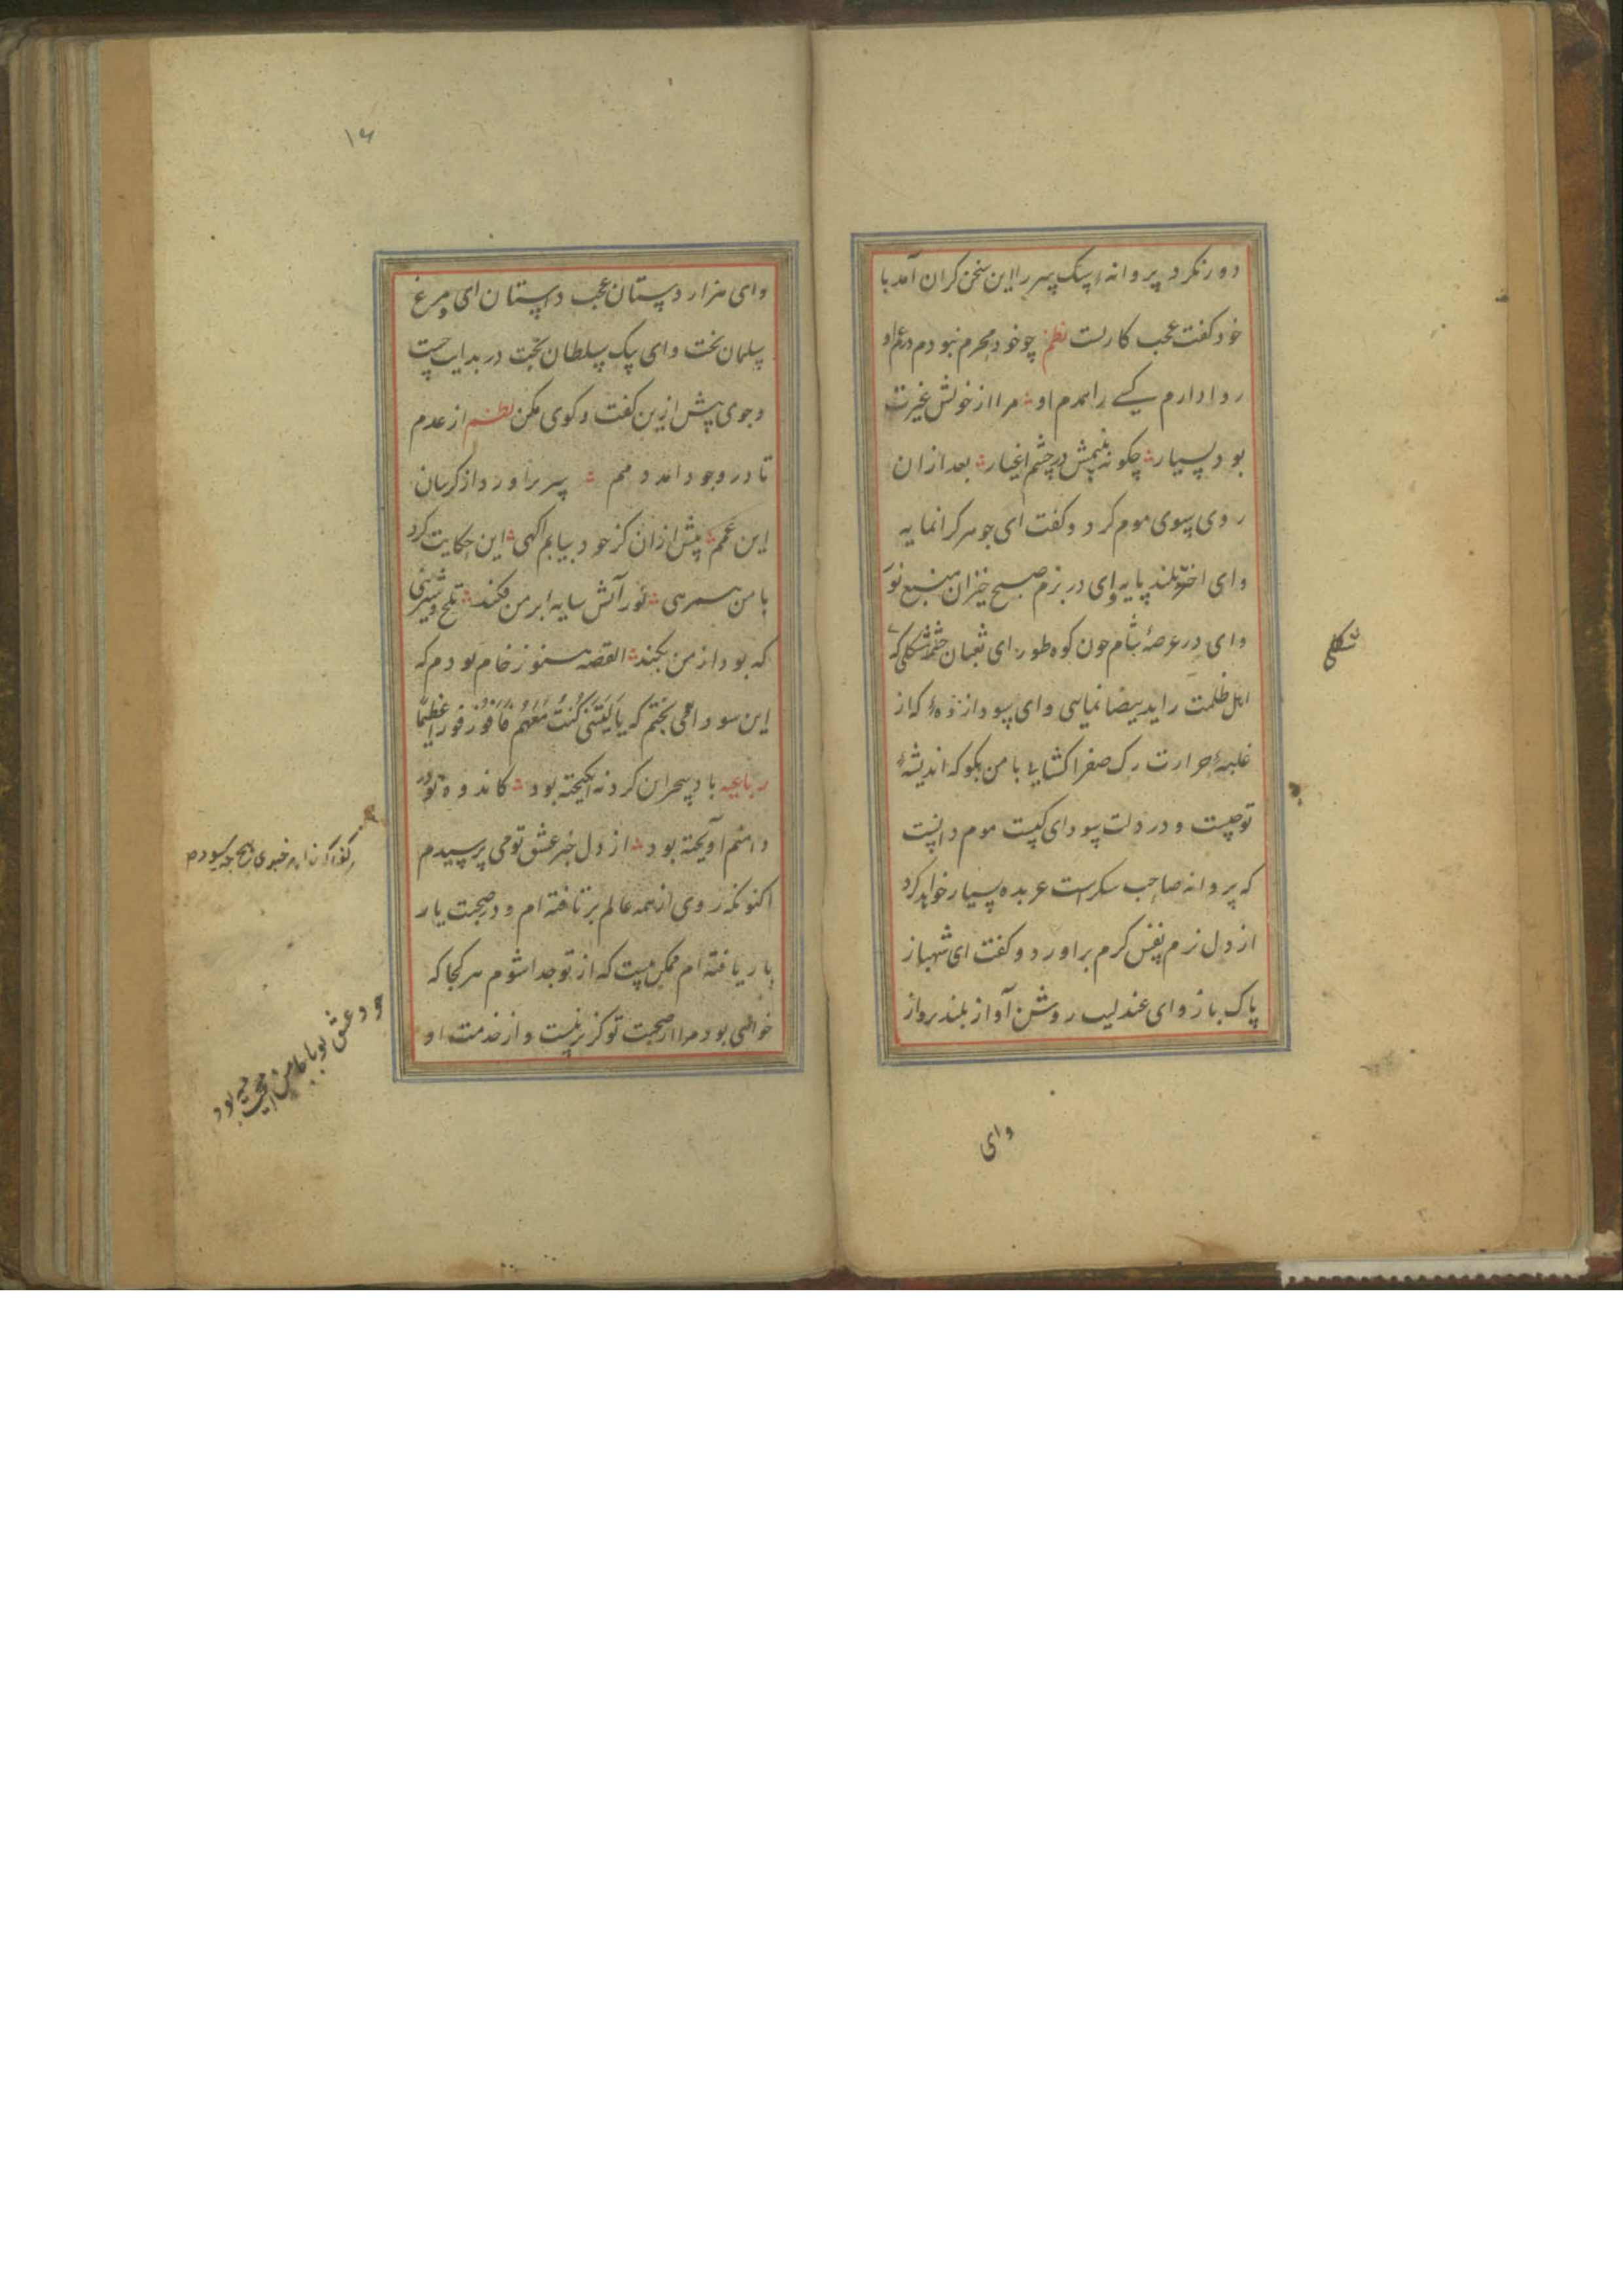 دور نکرد پروانه سبک سر را این سخن کران آمد با
خود کفت عجب کاریست نظم چو خود محرم نبودم در غم او
روا دارم کسے را همدم او مرا از خویش غیرت
بود بسیار چکونه بینمش در چشم اغیار بعد از ان
روی بسوی موم کرد و کفت ای جوهر کرانمایه
وای اختر بلند پایه وای در بزم صبح خیزان منبع نور
وای در عرصهٔ شام چون کوه طور ای ثعبان چشم شکلی که
اهل ظلمت را ید بیضا نمایی وای سودا زدهٔ که از
غلبهٔ حرارت رک صفرا کشایے با من بکو که اندیشهٔ
تو چیست و در دلت سودای کیست موم دانست
که پروانه صاحب سکر است عربده بسیار خواهد کرد
از دل نرم نفس کرم براورد و کفت ای شهباز
پاک باز وای عندلیب روشن آواز بلند پرواز
شکلی
وای
۱۶
وای هزار دستان عجب داستان ای مرغ
سلیمان تخت وای پیک سلطان بخت در بدایت جست
وجوی پیش ازین کفت وکوی مکن نظم از عدم
تا در وجود آمد دمم سر براورد از کریبان
این غمم پیش از ان کز خود بیابم اکهی این حکایت کرد
با من همرهی نور آتش سایه بر من فکند تلخ و شیرینی
که بود از من بکند القصه هنوز خام بودم که
این سودا می پختم که یَا لَیْتَنِی کُنْتُ مَعَهُمْ فَاَفُوزَ فَوْزًا عَظِیمًا
رباعیه باد سحر این کرد نه انکیخته بود کاندوه تو در
دامنم آویخته بود از دل خبر عشق تو می پرسیدم
اکنونکه روی از همه عالم بر تافته ام و در صحبت یار
بار یافته ام ممکن نیست که از تو جدا شوم هر کجا که
خواهی بود مرا از صحبت تو کزیر نیست و از خدمت او
خود عشق تو با